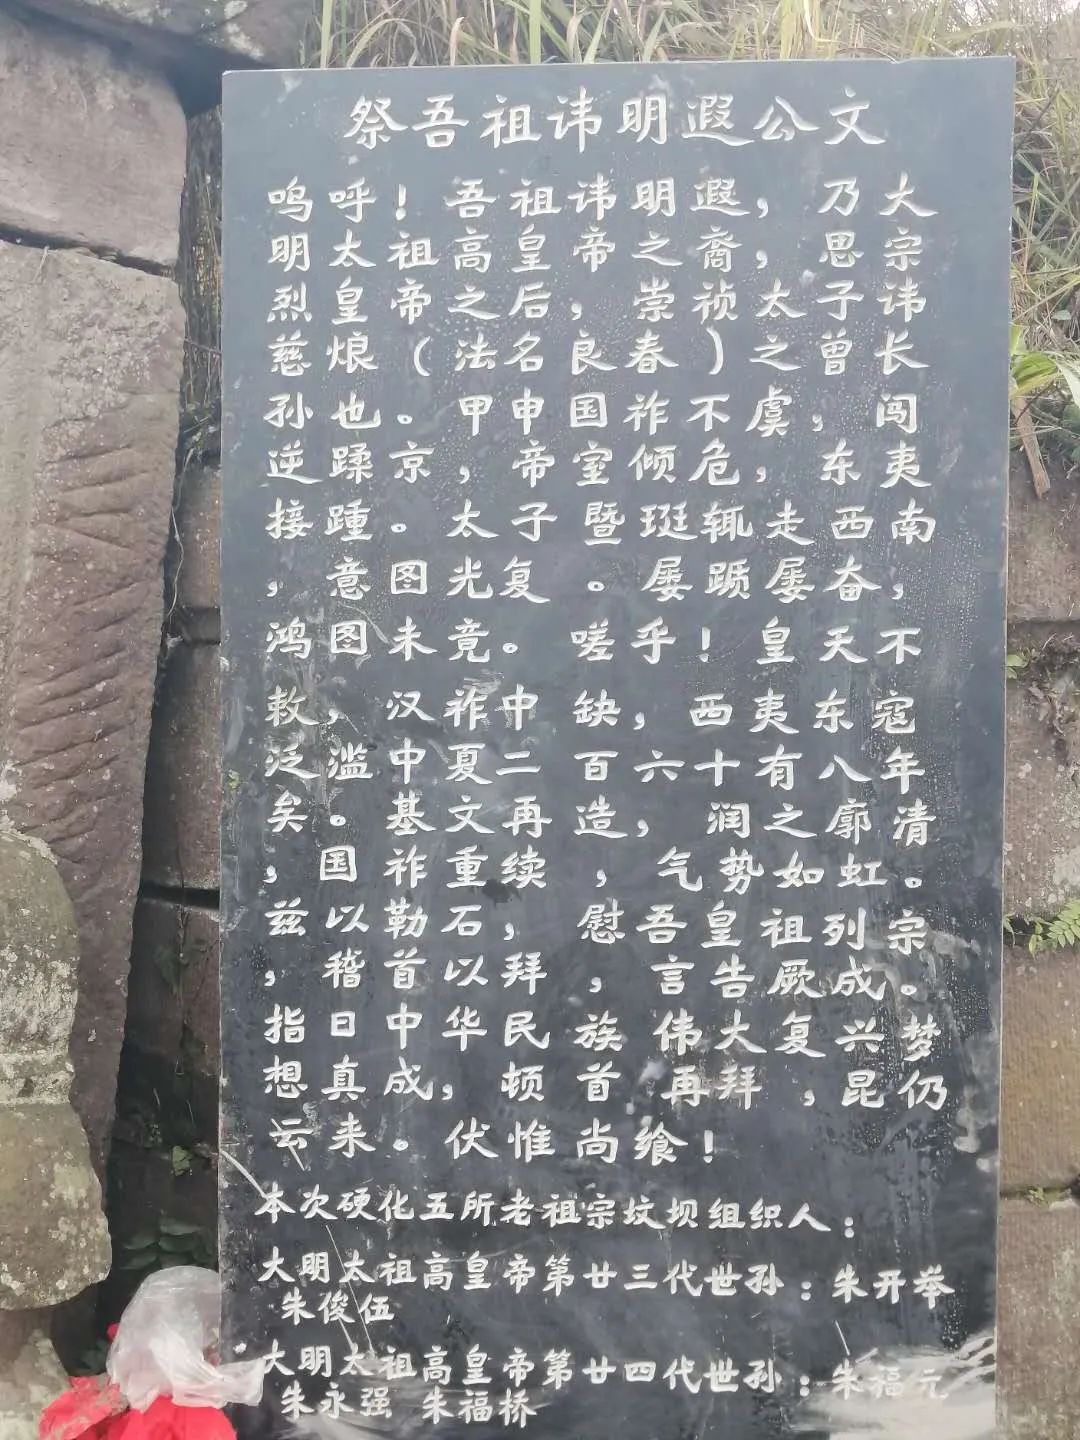 祭吾祖讳明遐公文
呜呼！吾祖讳明遐，乃大
明太祖高皇帝之裔，思宗
烈皇帝之后，崇祯太子讳
慈烺（法名良春）之曾长
孙也。甲申国祚不虞，闯
逆蹂京，帝室倾危，东夷
接踵。太子暨珽辄走西南
，意图光复。屡踬屡奋，
鸿图未竟。嗟乎！皇天不
敕，汉祚中缺，西夷东寇
泛滥中夏二百六十有八年
矣。基文再造，润之廓清
，国祚重续，气势如虹。
兹以勒石，慰吾皇祖列宗
，稽首以拜，言告厥成。
指日中华民族伟大复兴梦
想真成，顿首再拜，昆仍
云来。伏惟尚飨！
本次硬化五所老祖宗坟坝组织人：
大明太祖高皇帝第廿三代世孙：朱开举
朱俊伍
大明太祖高皇帝第廿四代世孙：朱福元
朱永强 朱福桥